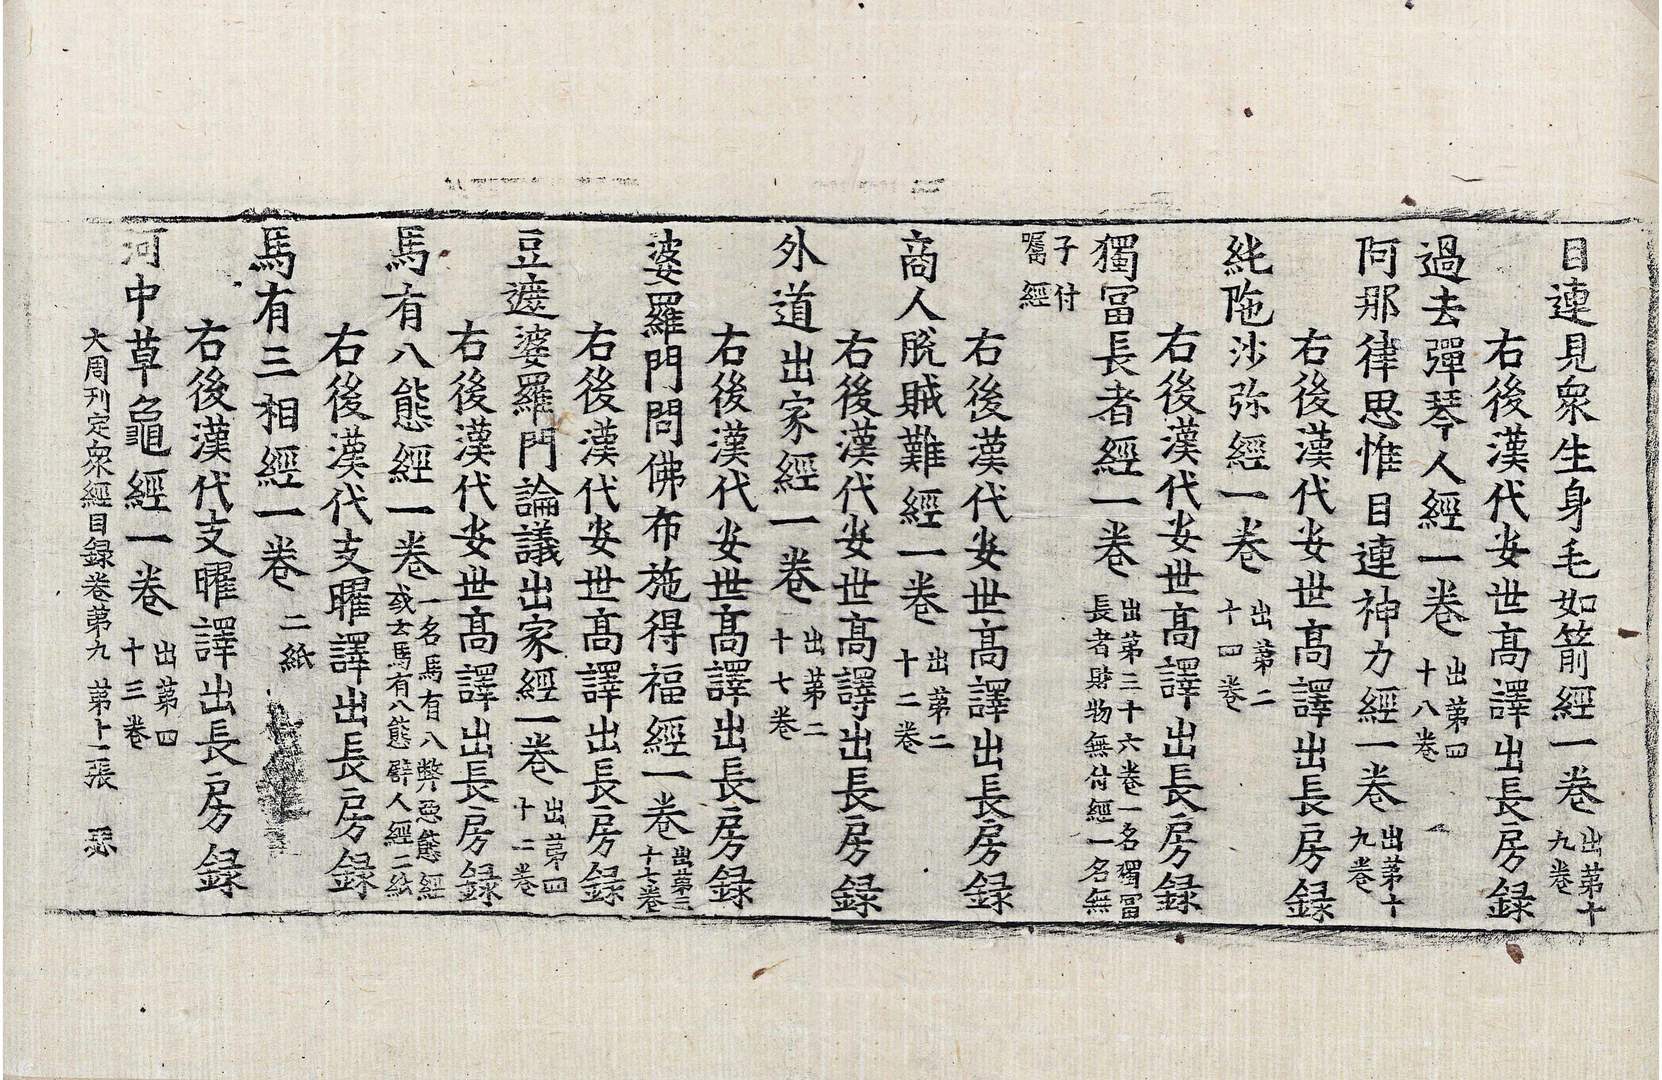 目連見衆生身毛如箭經一卷出第十九卷
右後漢代安世高譯出長房録
過去彈琴人經一卷出第四十八卷
阿那律思惟目連神力經一卷出第十九卷
右後漢代安世高譯出長房録
純陁沙弥經一卷出第二十四卷
右後漢代安世高譯出長房録
獨冨長者經一卷出第三十六卷一名獨冨長者財物無付經一名無
子付囑經
右後漢代安世高譯出長房録
商人脫賊難經一卷出第二十二卷
右後漢代安世高譯出長房録
外道出家經一卷出第二十七卷
右後漢代安世高譯出長房録
婆羅門問佛布施得福經一卷出第三十七卷
右後漢代安世高譯出長房録
豆遮婆羅門論議出家經一卷出第四十二卷
右後漢代安世高譯出長房録
馬有八態經一卷一名馬有八弊惡態經或云馬有八態譬人經二紙
右後漢代支曜譯出長房録
馬有三相經一卷二紙
右後漢代支曜譯出長房録
河中草龜經一卷出第四十三卷
大周刊定衆經目録卷第九　第十二張